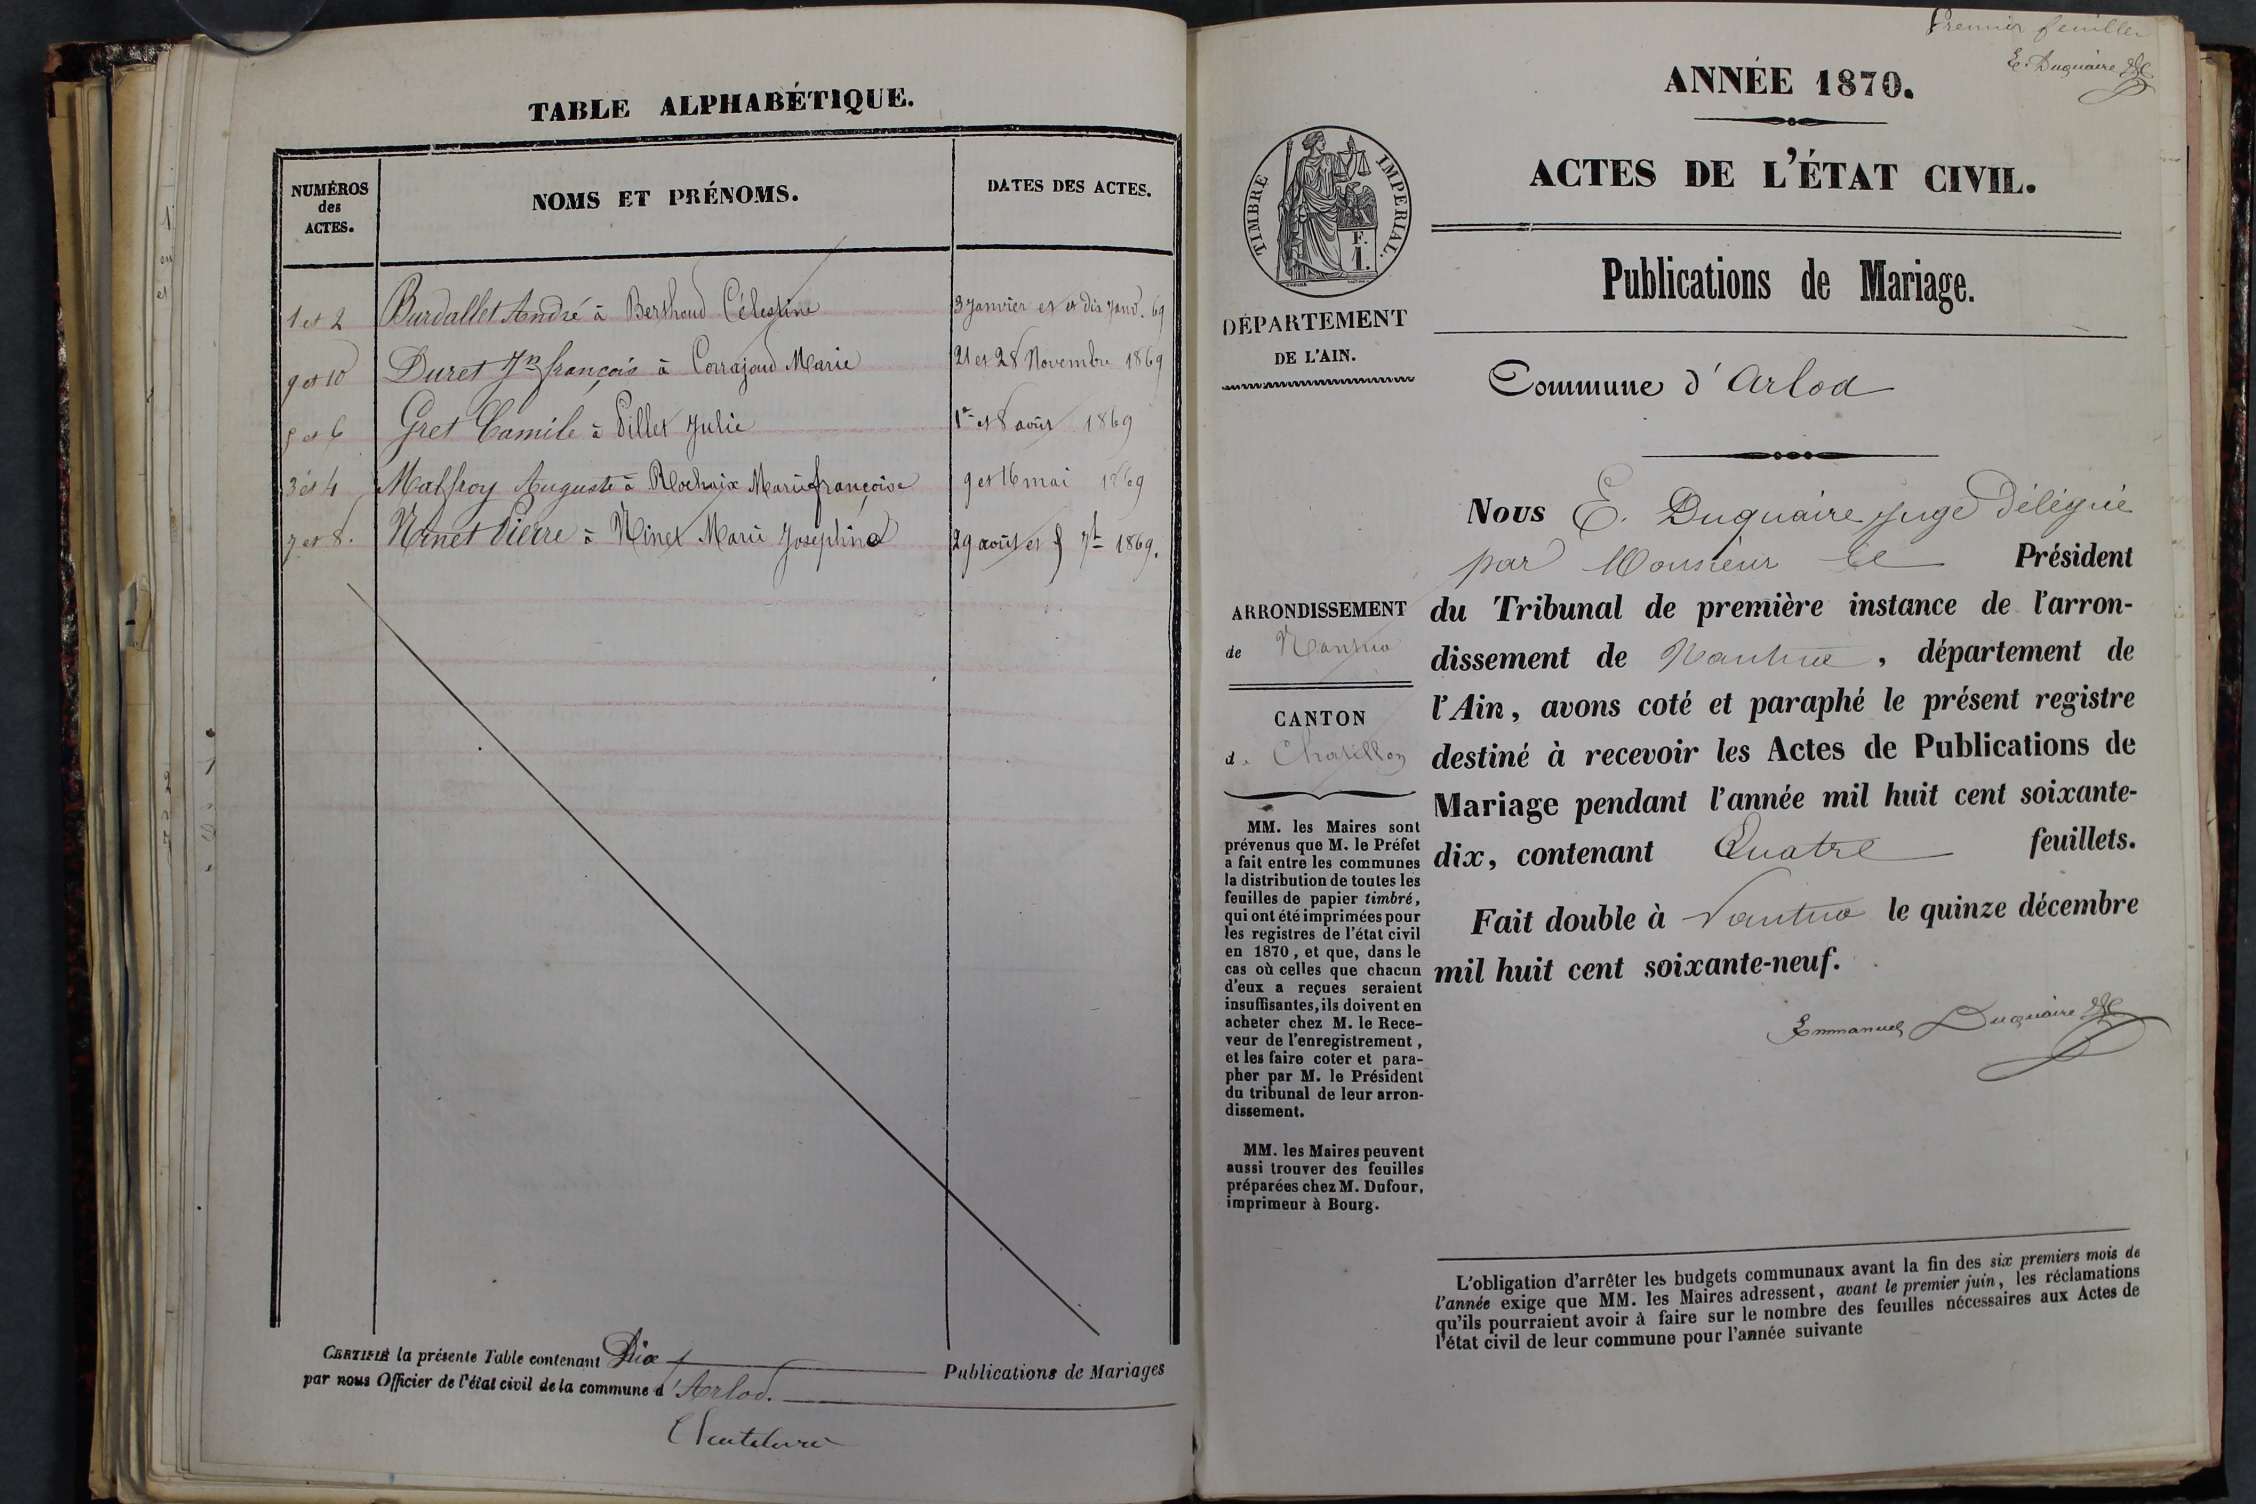 TABLE ALPHABÉTIQUE.
NUMÉROS
des
ACTES.
NOMS ET PRÉNOMS.
DATES DES ACTES.
1 et 2 Burdallet André à Berthoud Célestine 3 Janvier et dix Janv. 69
9 et 10 Duret Jn françois à Corrajoud Marie 21 et 28 Novembre 1869
5 et 6 Gret Camile à Pillet Julie 1er et 8 août 1869
3 et 4 Maffroy Auguste à Rochaix Marie françoise 9 et 16 mai 1869
7 et 8. Ninet Pierre à Ninet Marie Josephine 29 août et 5 7b 1869.
CERTIFIÉ la présente Table contenant Dix Publications de Mariages
par nous Officier de l'état civil de la commune d'Arlod.
Premier feuillet
E. Duquaire
ANNÉE 1870.
ACTES DE L'ÉTAT CIVIL.
Publications de Mariage.
TIMBRE IMPERIAL.
F.
1.
DÉPARTEMENT
DE L'AIN.
Commune d'Arlod
Nous E. Duquaire juge délégué
par Monsieur le Président
du Tribunal de première instance de l'arron-
dissement de Nantua, département de
l'Ain, avons coté et paraphé le présent registre
destiné à recevoir les Actes de Publications de
Mariage pendant l'année mil huit cent soixante-
dix, contenant Quatre feuillets.
Fait double à Nantua le quinze décembre
mil huit cent soixante-neuf.
Emmanuel Duquaire
ARRONDISSEMENT
de Nantua
CANTON
d. Chatillon
MM. les Maires sont
prévenus que M. le Préfet
a fait entre les communes
la distribution de toutes les
feuilles de papier timbré,
qui ont été imprimées pour
les registres de l'état civil
en 1870, et que, dans le
cas où celles que chacun
d'eux a reçues seraient
insuffisantes, ils doivent en
acheter chez M. le Rece-
veur de l'enregistrement,
et les faire coter et para-
pher par M. le Président
du tribunal de leur arron-
dissement.
MM. les Maires peuvent
aussi trouver des feuilles
préparées chez M. Dufour,
imprimeur à Bourg.
L'obligation d'arrêter les budgets communaux avant la fin des six premiers mois de
l'année exige que MM. les Maires adressent, avant le premier juin, les réclamations
qu'ils pourraient avoir à faire sur le nombre des feuilles nécessaires aux Actes de
l'état civil de leur commune pour l'année suivante